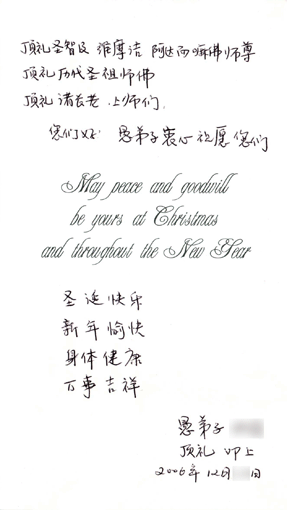 顶礼圣智 维摩诘 阿达而嘛佛师尊
顶礼历代圣祖师佛
顶礼诸长老、上师们,
您们好! 愚弟子衷心祝愿您们
May peace and goodwill
be yours at Christmas
and throughout the New Year
圣诞快乐
新年愉快
身体健康
万事吉祥
愚弟子
顶礼 叩上
2006年12月 日